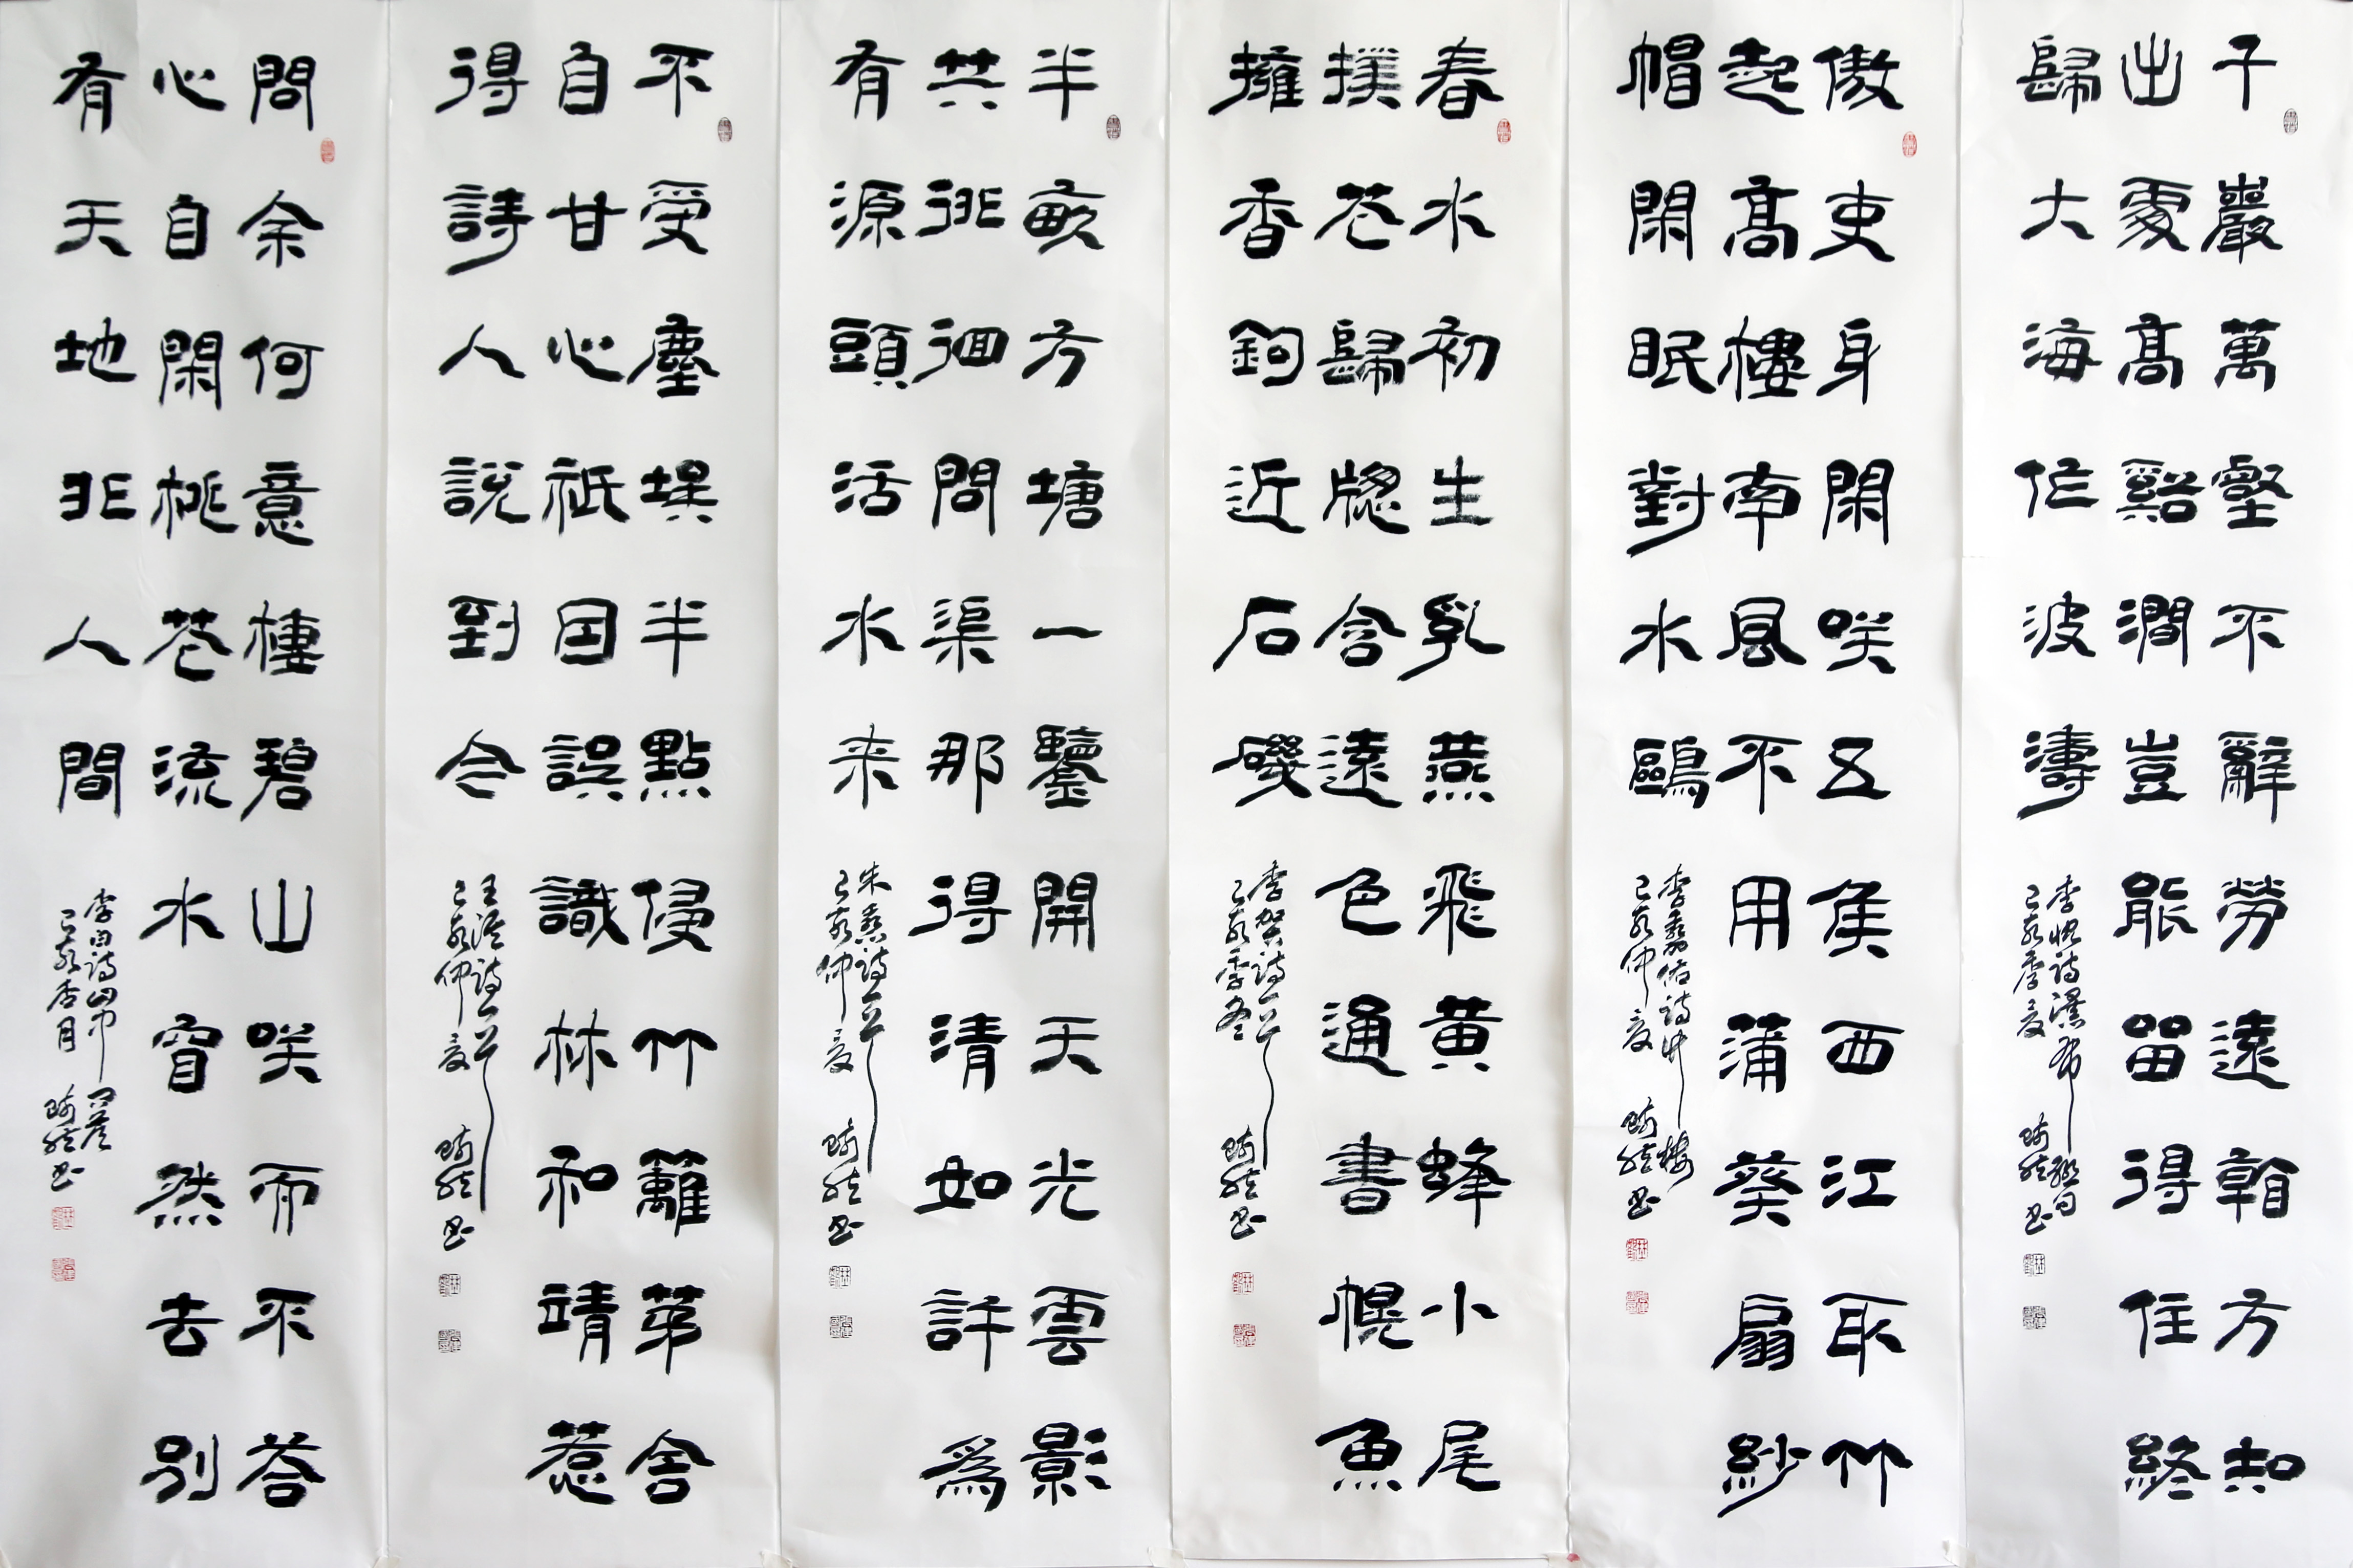 千巖萬壑不辭勞遠看方知
出處高谿澗豈能留得住終
歸大海作波濤
李忱诗瀑布联句
己亥季夏 书
傲吏身閑咲五侯西江取竹
起高樓南風不用蒲葵扇紗
帽閑眠對水鷗
李嘉佑诗竹楼
己亥仲夏 书
春水初生乳燕飛黃蜂小尾
撲花歸牕含遠色通書幌魚
擁香鉤近石磯
李贺诗一首
己亥季冬 书
半畝方塘一鑒開天光雲影
共徘徊問渠那得清如許為
有源頭活水来
朱熹诗一首
己亥仲夏 书
不受塵埃半點侵竹籬茅舍
自甘心祗因誤識林和靖惹
得詩人說到今
王淇诗一首
己亥仲夏 书
問余何意棲碧山咲而不答
心自閑桃花流水窅然去別
有天地非人間
李白诗山中问答
己亥杏月 书